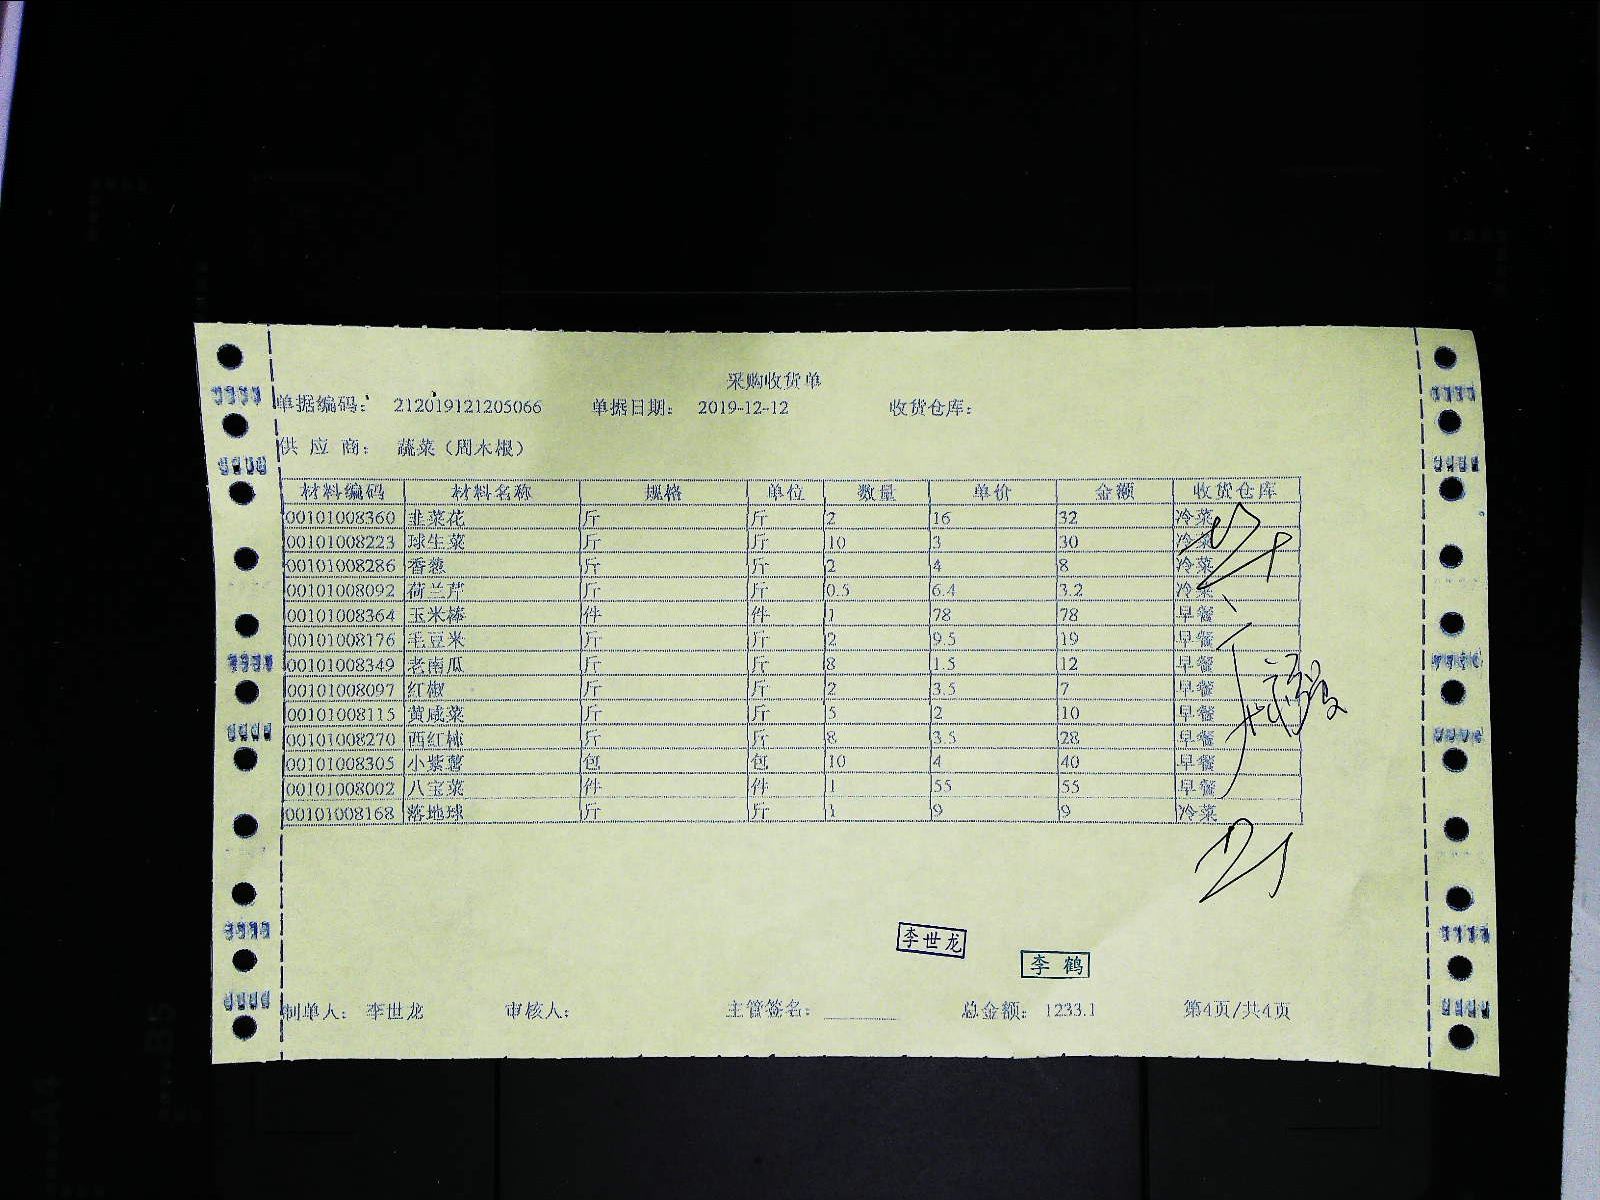 采购收货单
单据编码： 212019121205066 单据日期： 2019-12-12 收货仓库：
供 应 商： 蔬菜（周木根）
材料编码 材料名称 规格 单位 数量 单价 金额 收货仓库
00101008360 韭菜花 斤 斤 2 16 32 冷菜
00101008223 球生菜 斤 斤 10 3 30 冷菜
00101008286 香葱 斤 斤 2 4 8 冷菜
00101008092 荷兰芹 斤 斤 0.5 6.4 3.2 冷菜
00101008364 玉米棒 件 件 1 78 78 早餐
00101008176 毛豆米 斤 斤 2 9.5 19 早餐
00101008349 老南瓜 斤 斤 8 1.5 12 早餐
00101008097 红椒 斤 斤 2 3.5 7 早餐
00101008115 黄咸菜 斤 斤 5 2 10 早餐
00101008270 西红柿 斤 斤 8 3.5 28 早餐
00101008305 小紫薯 包 包 10 4 40 早餐
00101008002 八宝菜 件 件 1 55 55 早餐
00101008168 落地球 斤 斤 1 9 9 冷菜
李世龙
李鹤
制单人： 李世龙 审核人： 主管签名： 总金额： 1233.1 第4页/共4页